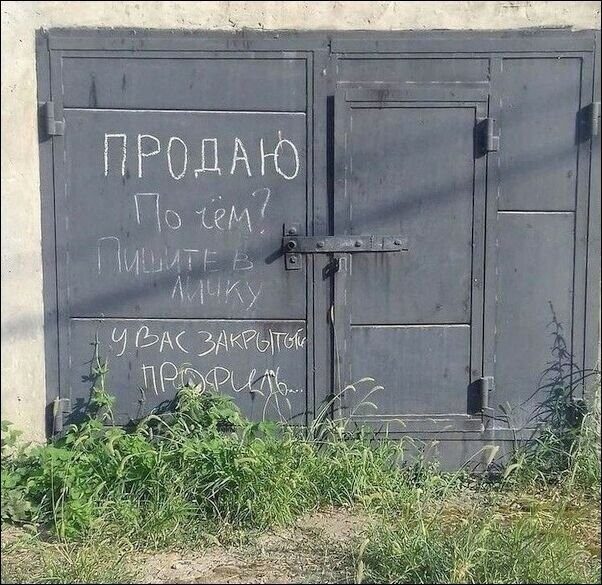 ПРОДАЮ
По чём?
ПИШИТЕ В
ЛИЧКУ
У ВАС ЗАКРЫТЫЙ
ПРОФИЛЬ...